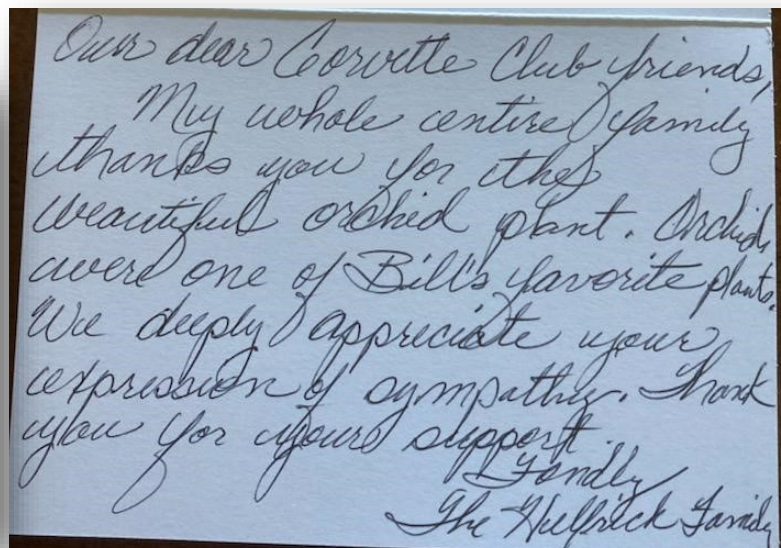 Our dear Corvette Club friends,
My whole entire family
thanks you for the
beautiful orchid plant. Orchids
were one of Bill's favorite plants.
We deeply appreciate your
expression of sympathy. Thank
you for your support.
Fondly
The Family